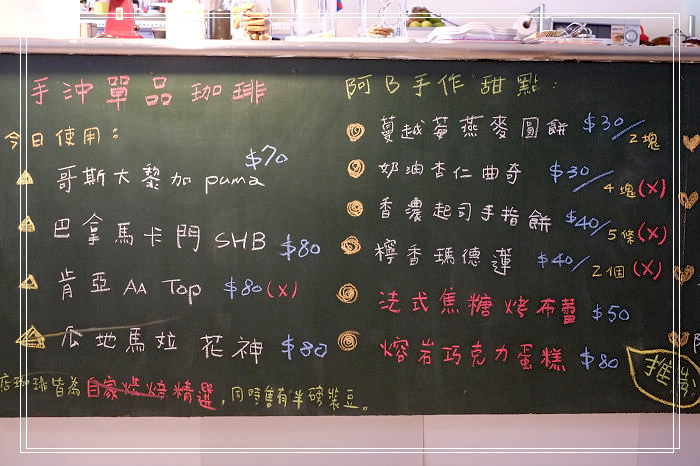 手沖單品珈琲
今日使用：
哥斯大黎加 puma $70
巴拿馬卡門 SHB $80
肯亞 AA Top $80 (X)
瓜地馬拉 花神 $80
店珈琲皆為自家烘焙精選，同時售有半磅裝豆。
阿B手作甜點：
蔓越莓燕麥圓餅 $30/2塊
奶油杏仁曲奇 $30/4塊 (X)
香濃起司手指餅 $40/5條 (X)
檸香瑪德蓮 $40/2個 (X)
法式焦糖烤布蕾 $50
熔岩巧克力蛋糕 $80
推薦